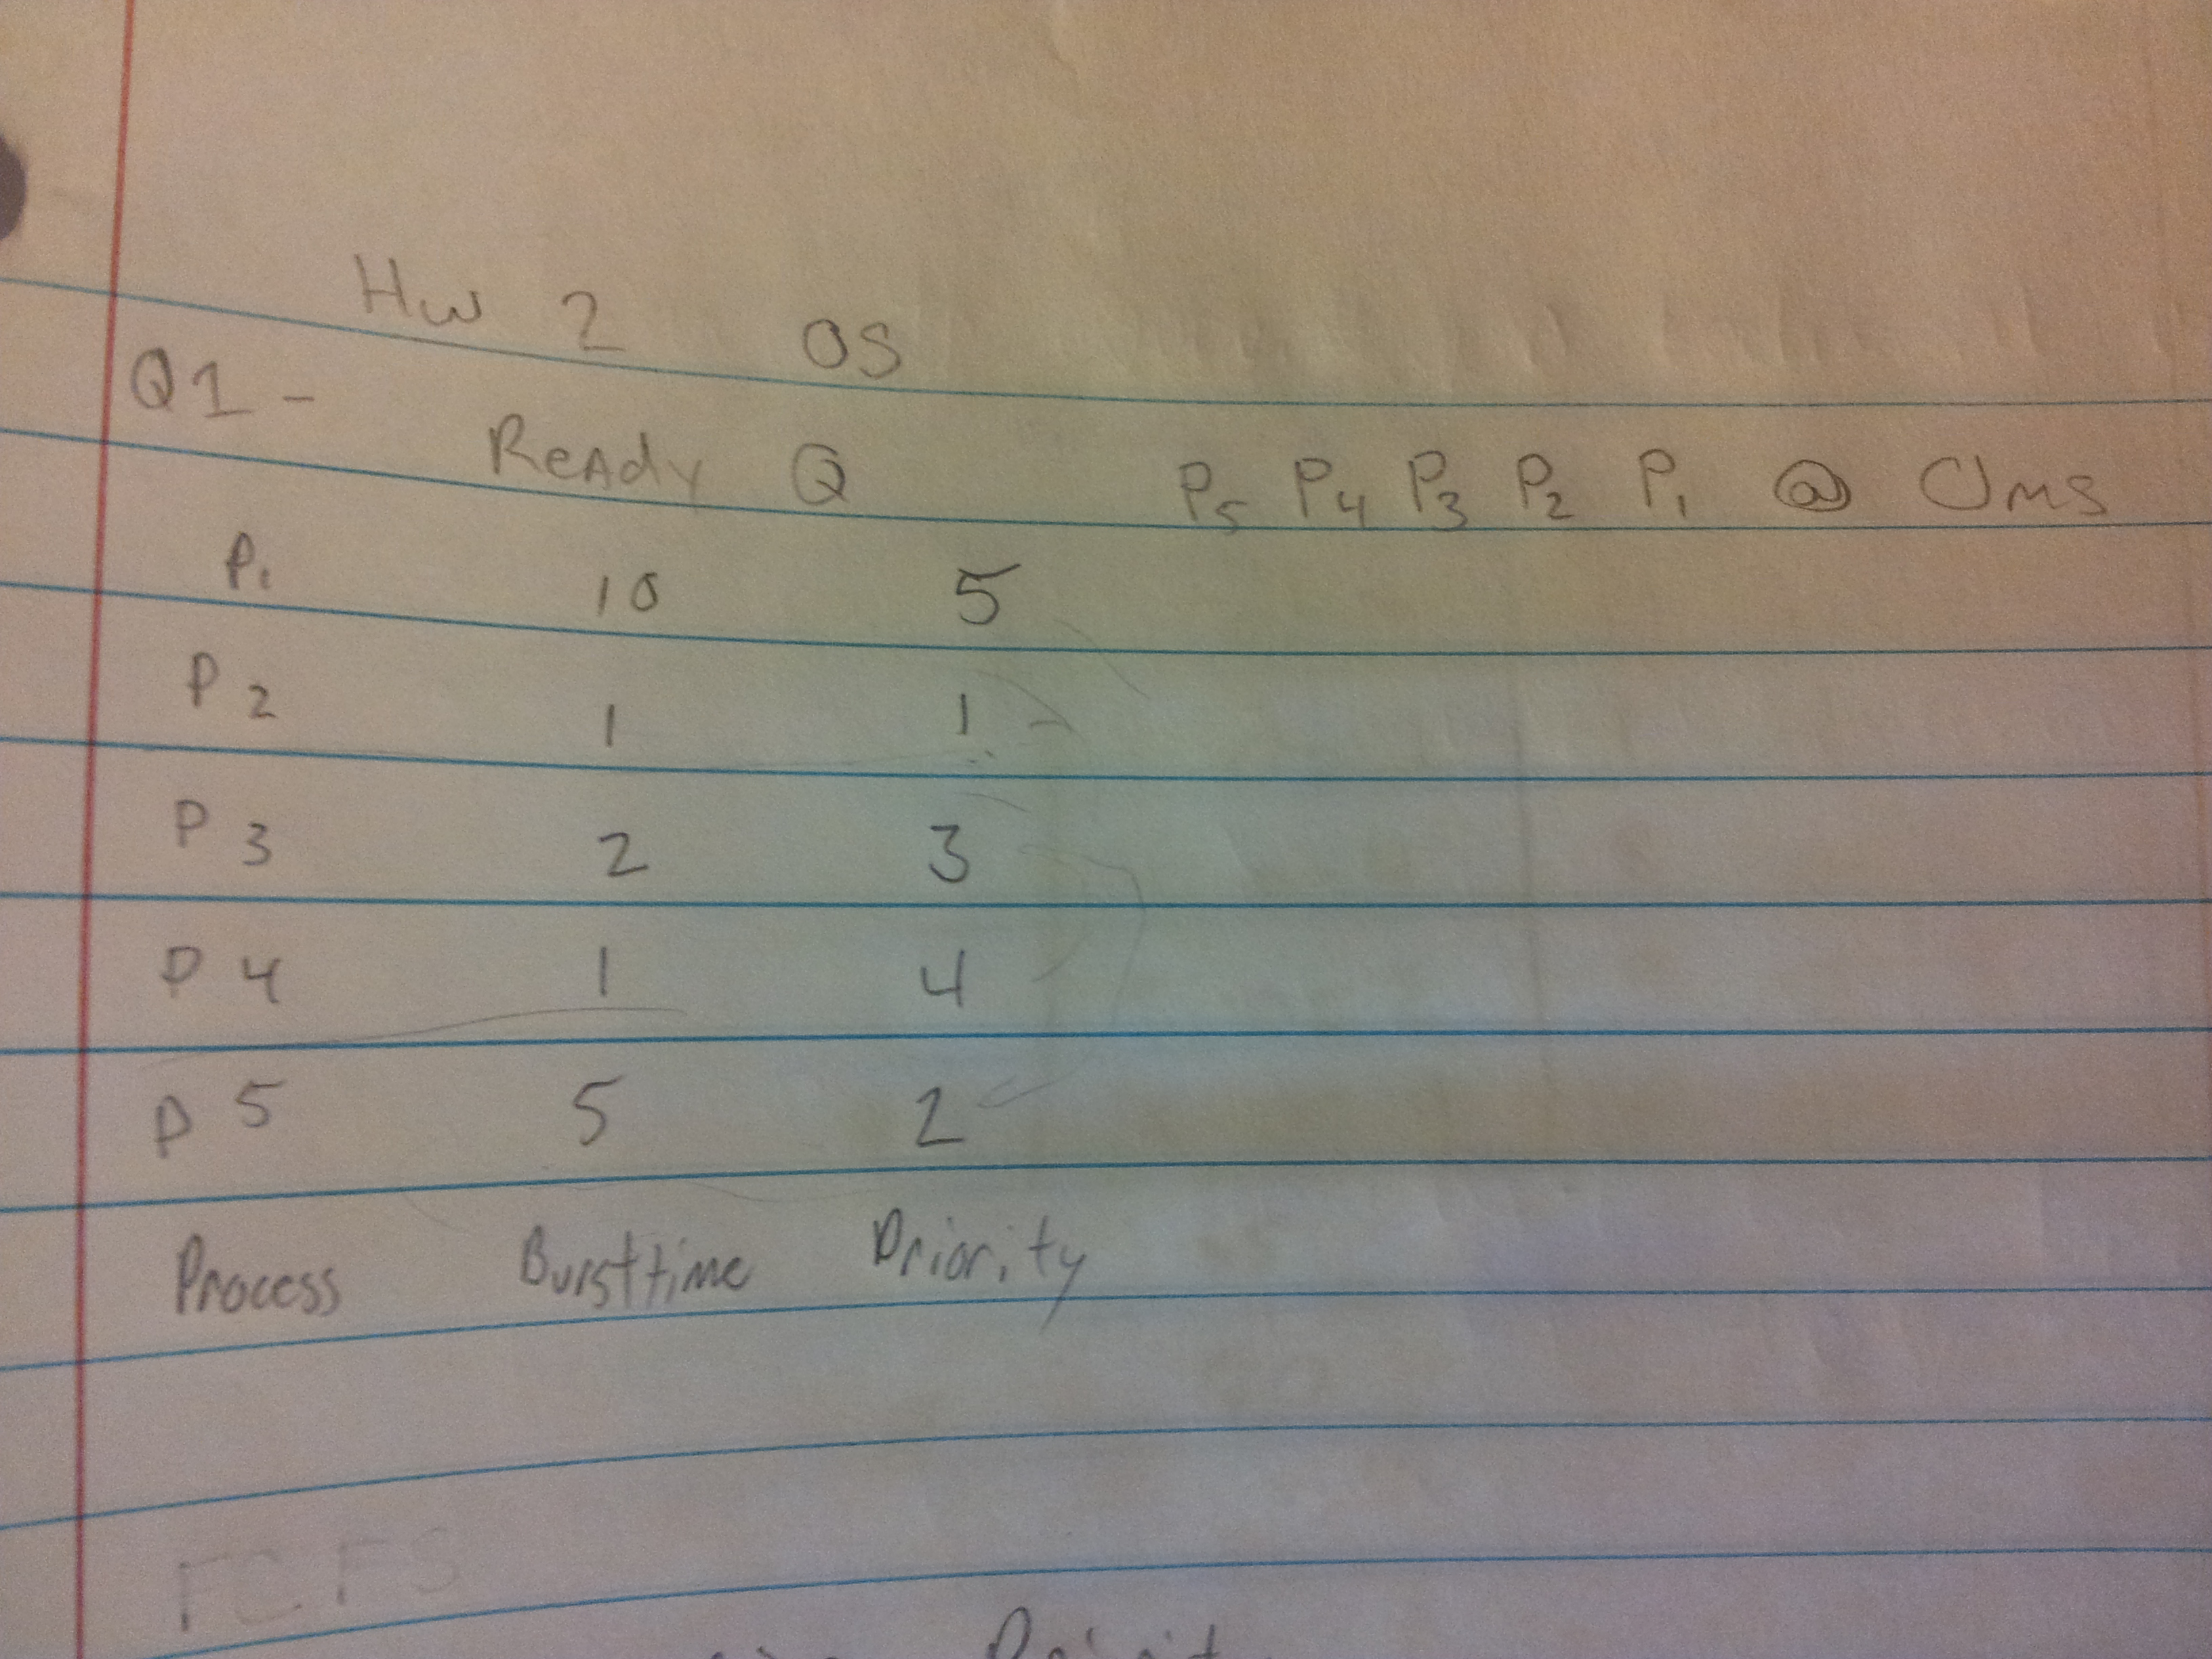 Hw 2 OS
Q1 -
Ready Q P5 P4 P3 P2 P1 @ 0ms
P1 10 5
P2 1 1
P3 2 3
P4 1 4
P5 5 2
Process Bursttime Priority
FCFS